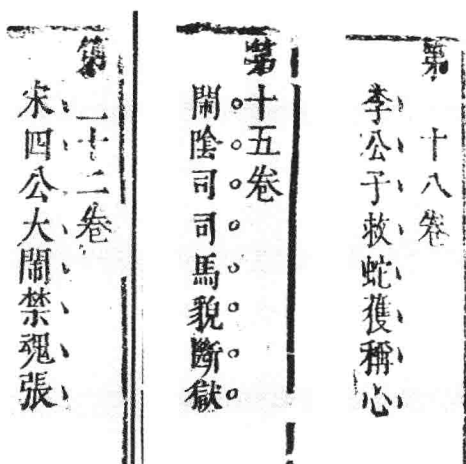 第十八卷
李公子救蛇獲稱心
第十五卷
閙陰司司馬貌斷獄
第一十二卷
宋四公大閙禁魂張